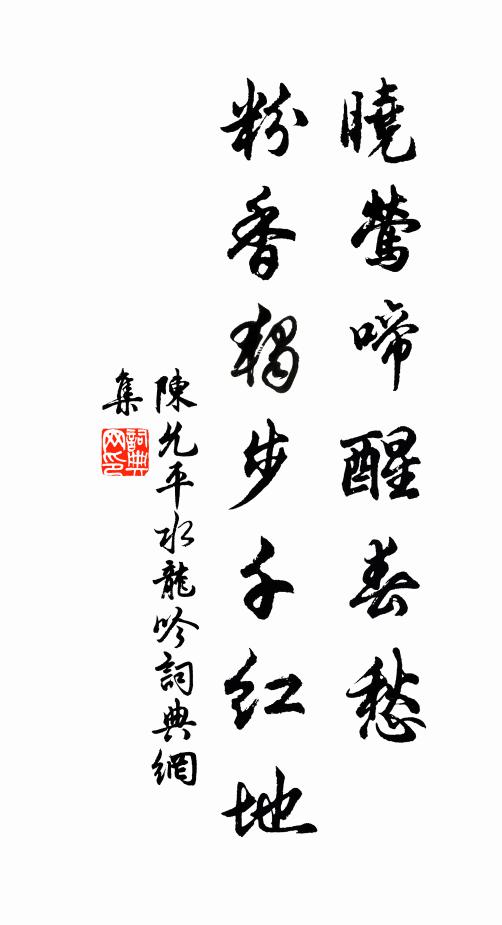 曉鶯啼醒春愁
粉香獨步千紅地
陳允平水龍吟詞典網
集
詞典網印